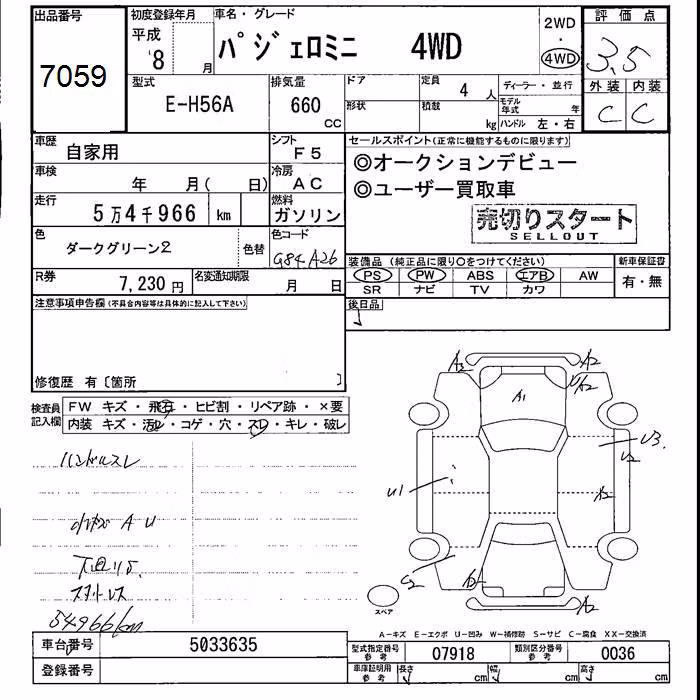 出品番号
7059
初度登録年月
平成
'8
月
車名・グレード
パジェロミニ 4WD
2WD
・
4WD
評価点
3.5
型式
E-H56A
排気量
660
CC
ドア
形状
定員
4 人
積載
kg
ディーラー・並行
モデル年式 年
ハンドル 左・右
外装 内装
C C
車歴
自家用
シフト
F5
車検
年 月( 日)
冷房
AC
走行
5万4千966 km
燃料
ガソリン
色
ダークグリーン2
色替
色コード
G84.A26
R券
7,230 円
名変通知期限
月 日
セールスポイント(正常に機能するものに限ります)
◎オークションデビュー
◎ユーザー買取車
売切りスタート
SELLOUT
装備品(純正品に限り○をつけてください)
PS PW ABS エアB AW
SR ナビ TV カワ
新車保証書
有・無
後日品
注意事項申告欄(不具合内容等は具体的に記入して下さい)
修復歴 有〔箇所 〕
検査員記入欄
FW キズ・飛石・ヒビ割・リペア跡・×要
内装 キズ・汚レ・コゲ・穴・スレ・キレ・破レ
ハンドルスレ
小キズ A U
下廻りS.
54966km
A2
A2
U/A2
A1
U3
U2
U1
A2
A2
スペア
A-キズ E-エクボ U-凹み W-補修跡 S-サビ C-腐食 XX-交換済
車台番号
5033635
登録番号
型式指定番号
参考
07918
類別区分番号
参考
0036
車庫証明用
参考
長さ cm
幅 cm
高さ cm